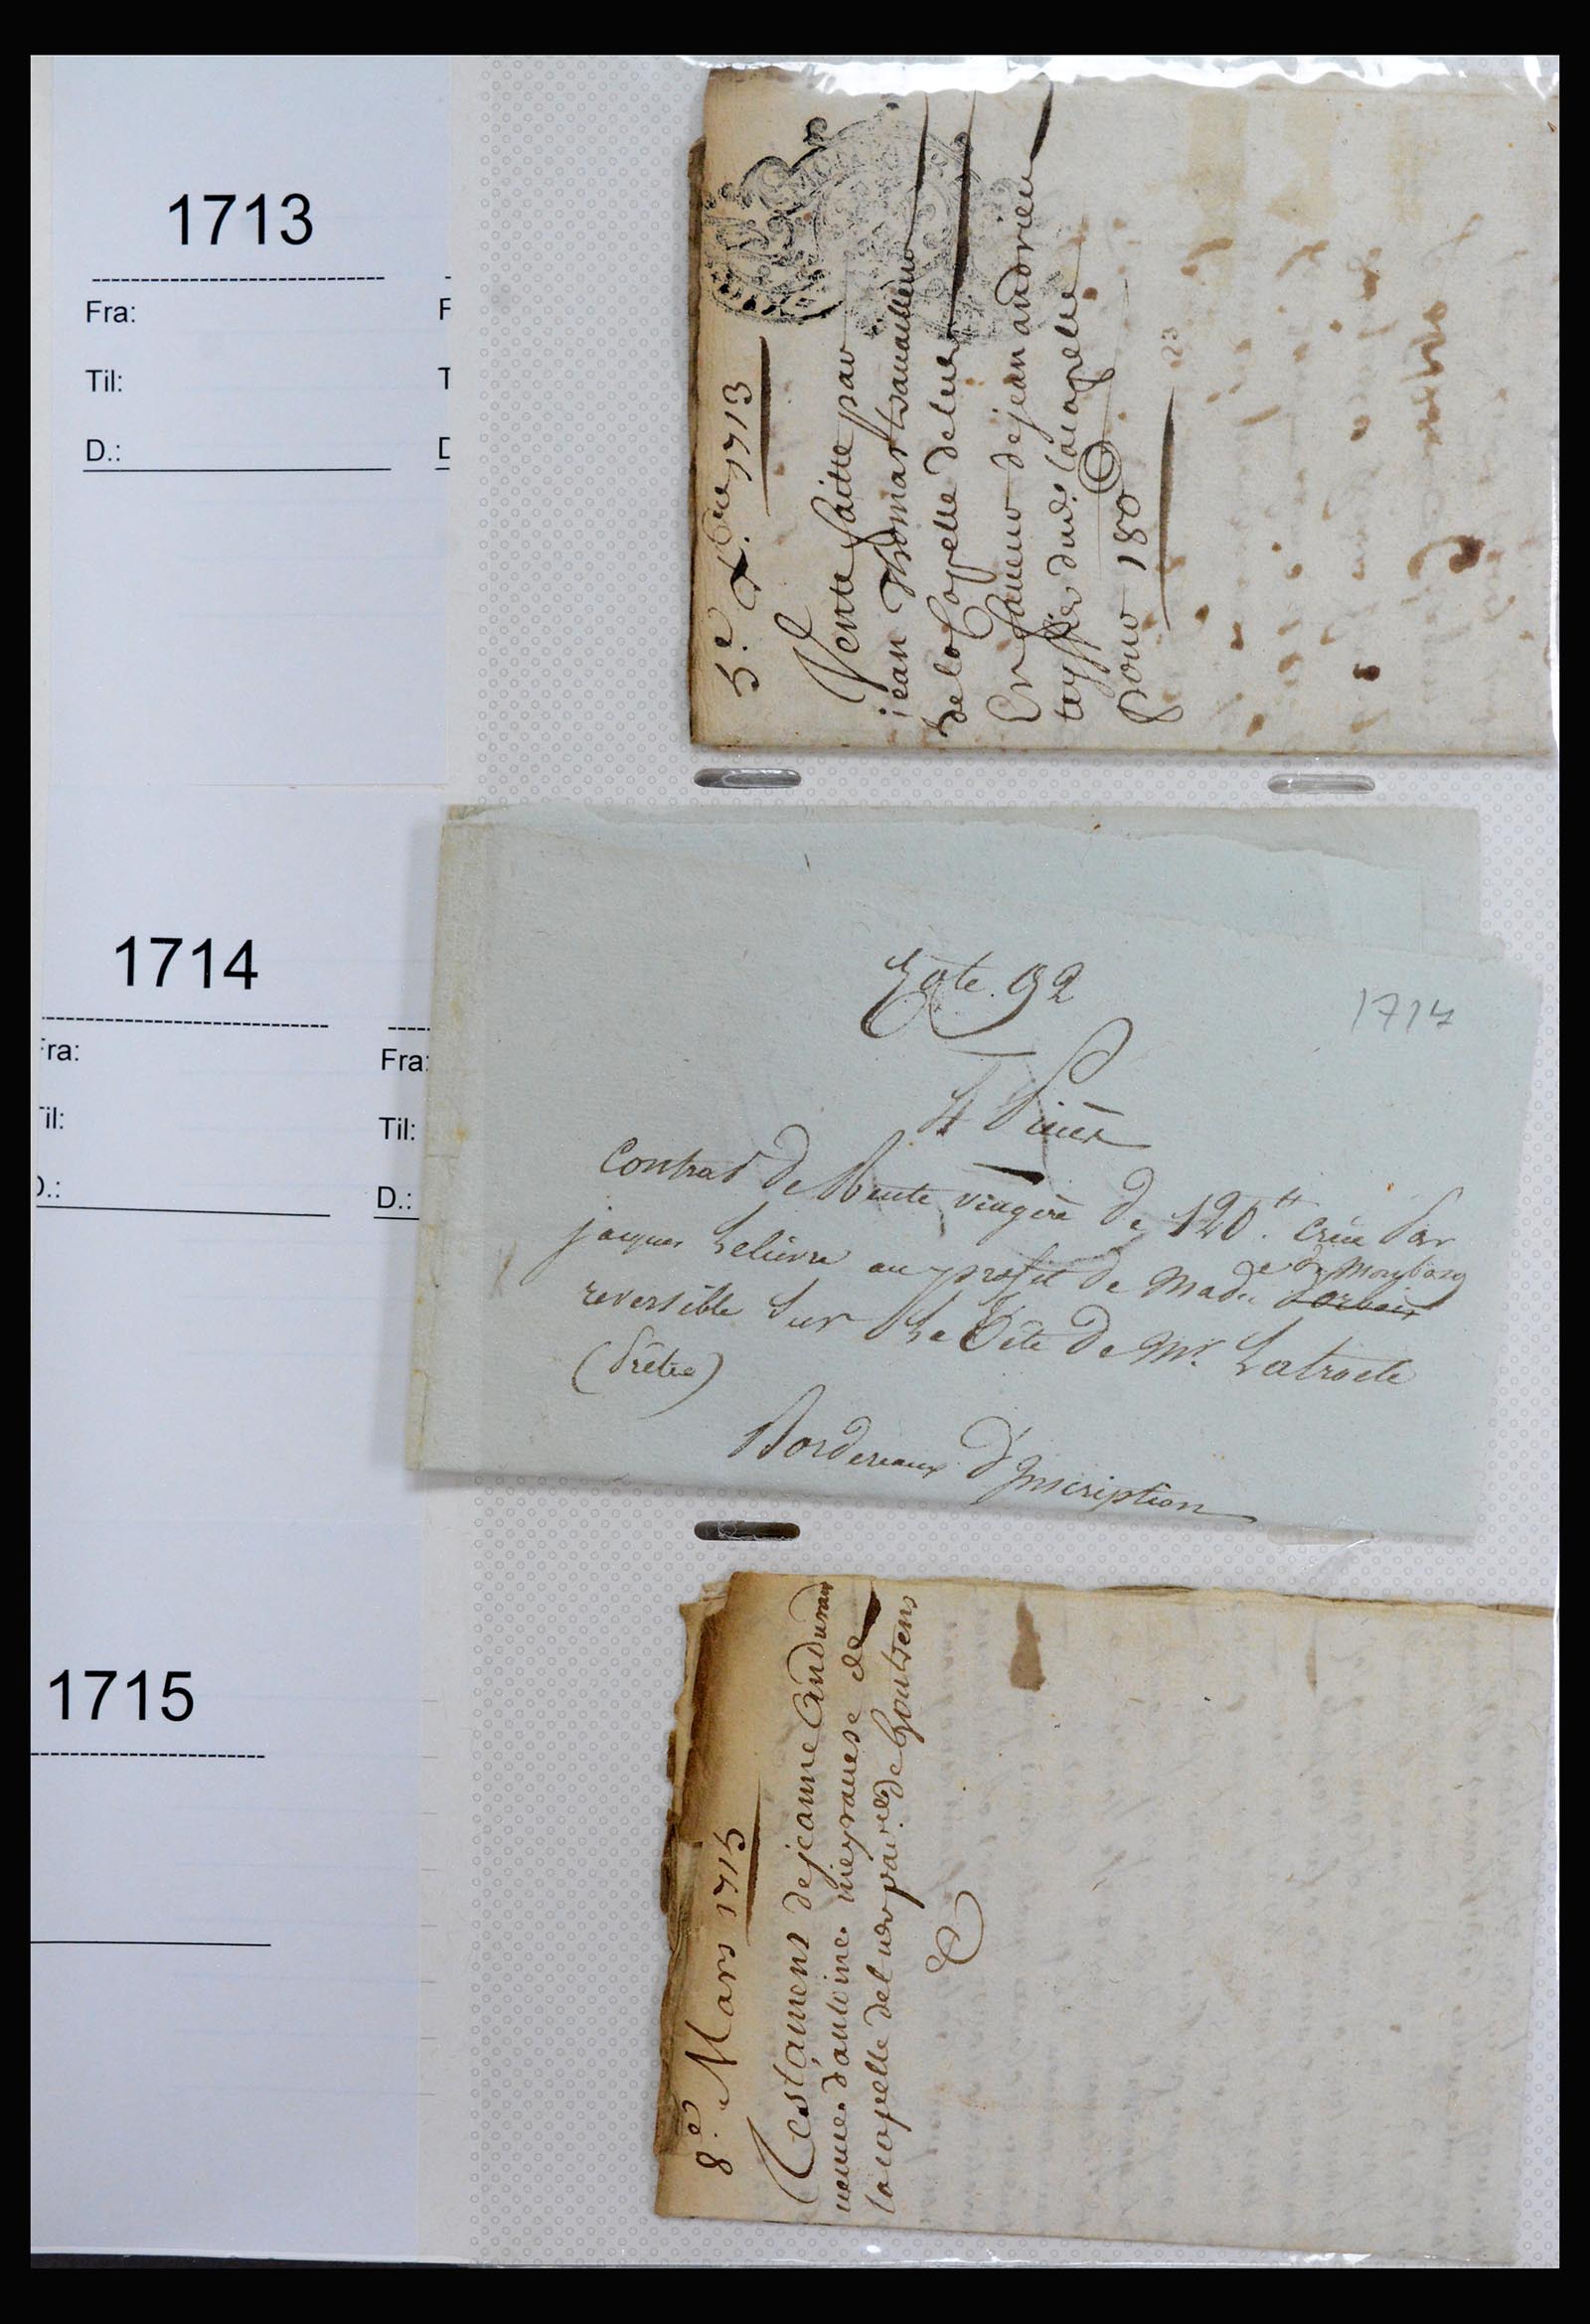 1713
Fra:
Til:
D.:
F
T
D
5.e 1713
Vente faitte par
jean Thomas travailleur
de la Capelle delur
En faveur de jean andrieu
dud. lacapelle
pour 180
23
1714
Fra:
Til:
D.:
Fra:
Til:
D.:
Cote. 92
1714
4 Pieces
Contrat de Rente viagere de 120.tt créée Par
jacques Lelievre au profit de Made de
reversible Sur La Tête de Mr. Latraele
(Prêtre)
Bordereaux d'Inscription
1715
8.e Mars 1715
Testament de jeanne Andurand
veuve d'antoine meyranese de
lacapelle delur par.sse de Goutrens